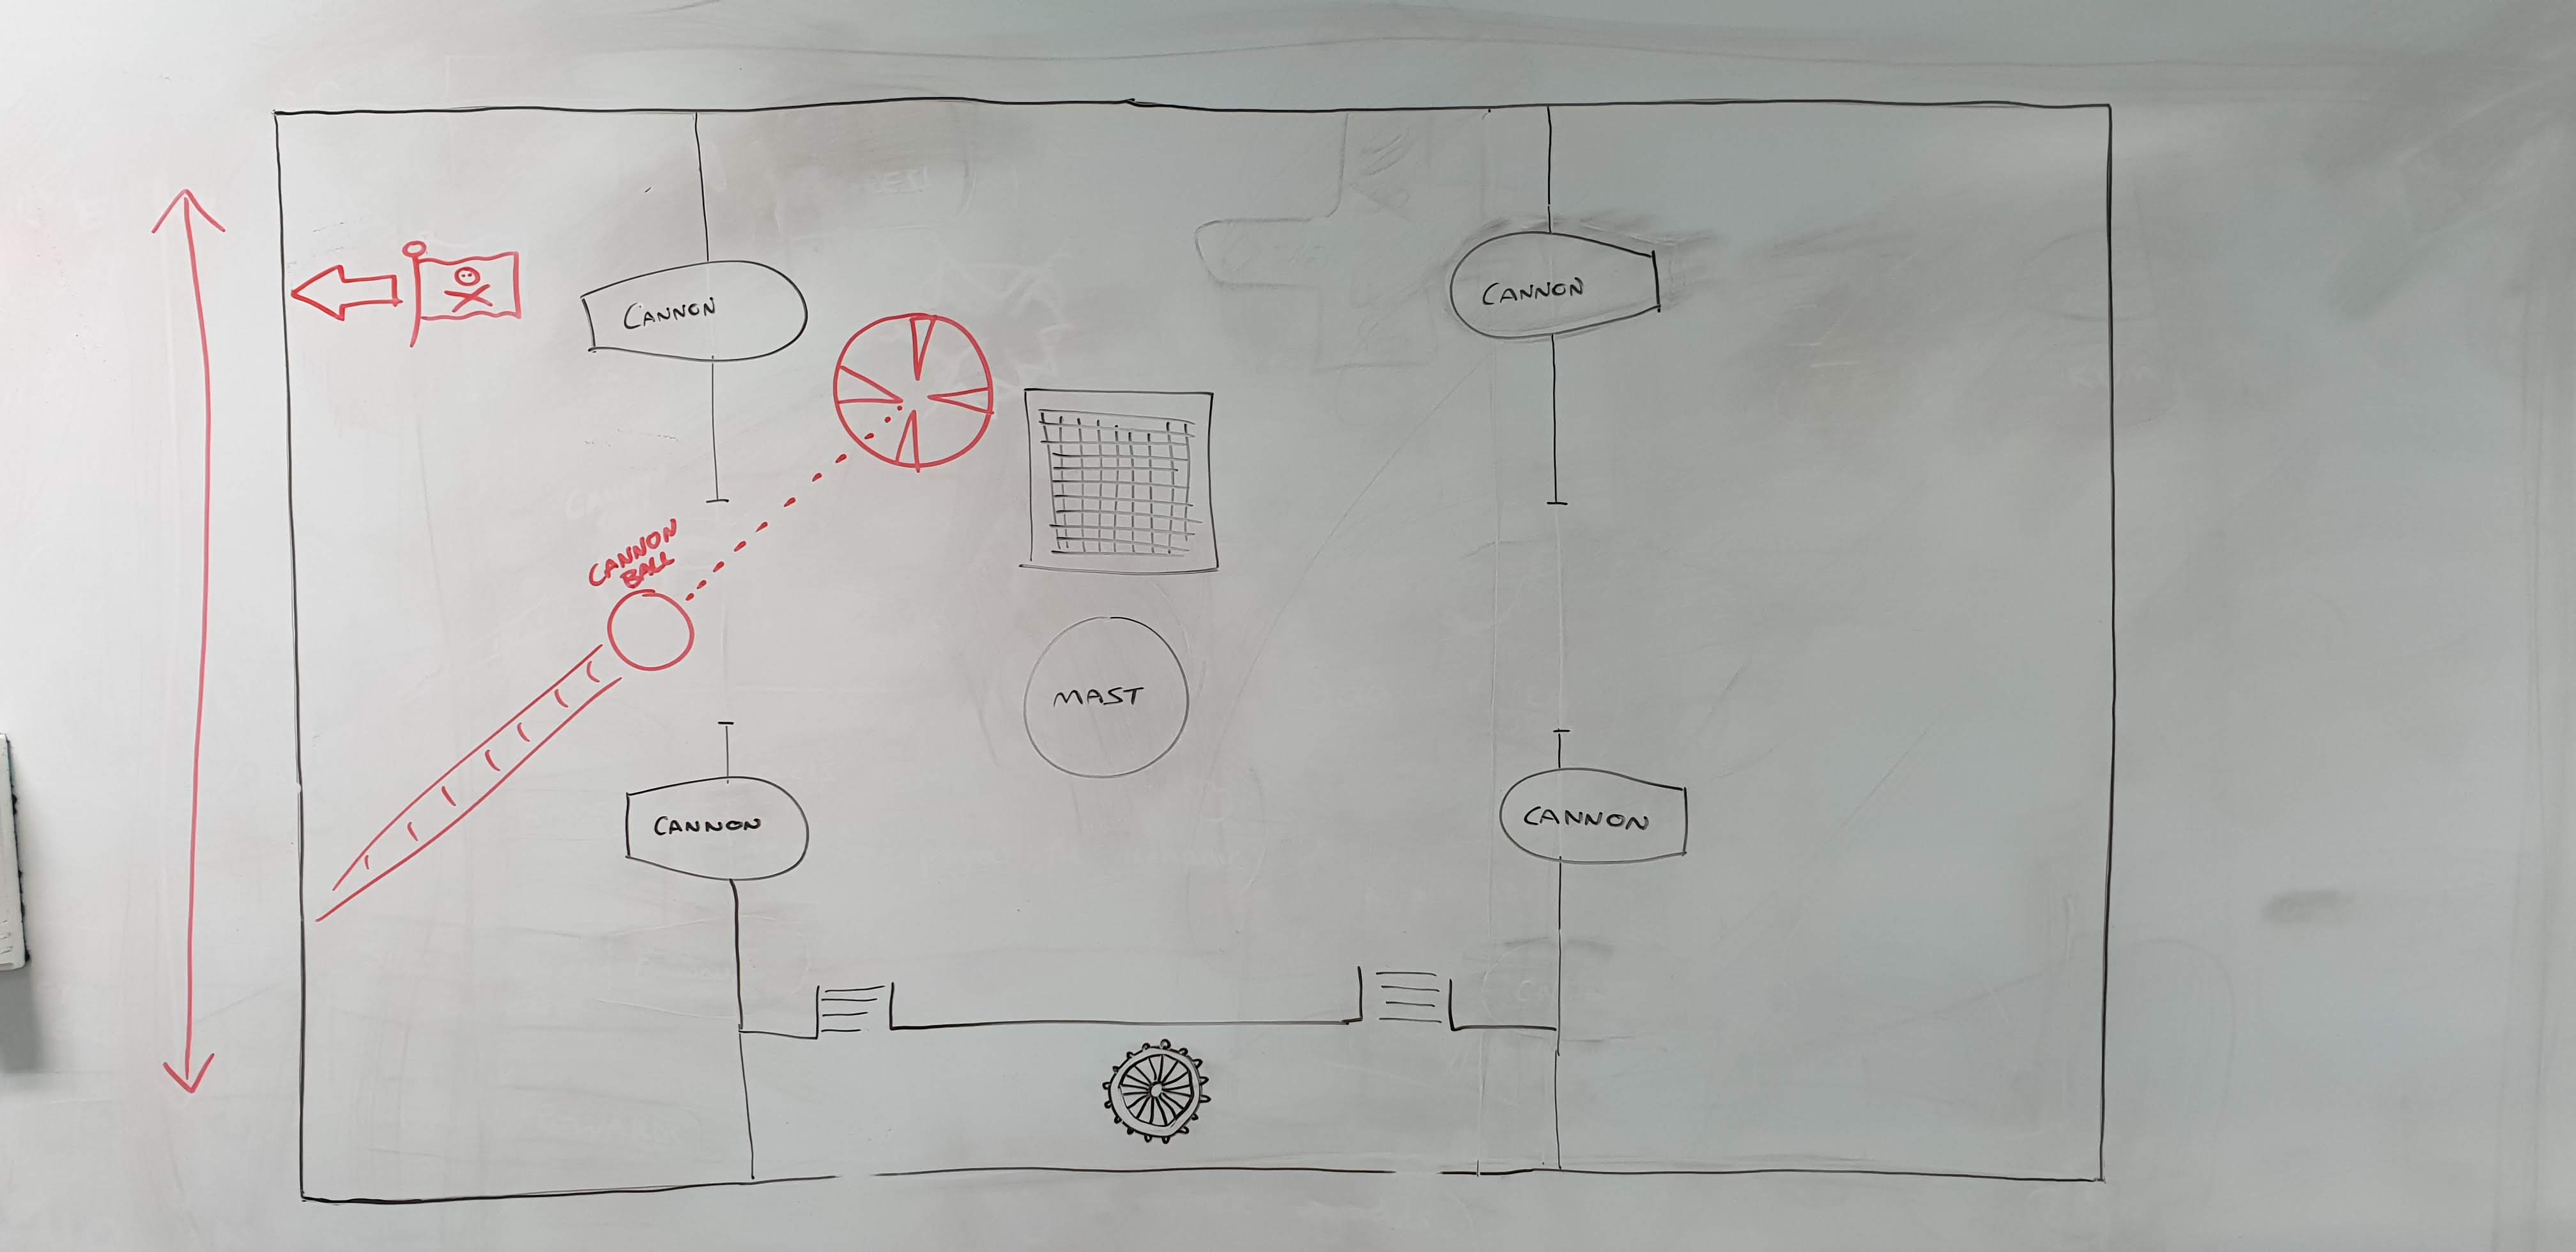 CANNON
CANNON
CANNON
BALL
MAST
CANNON
CANNON